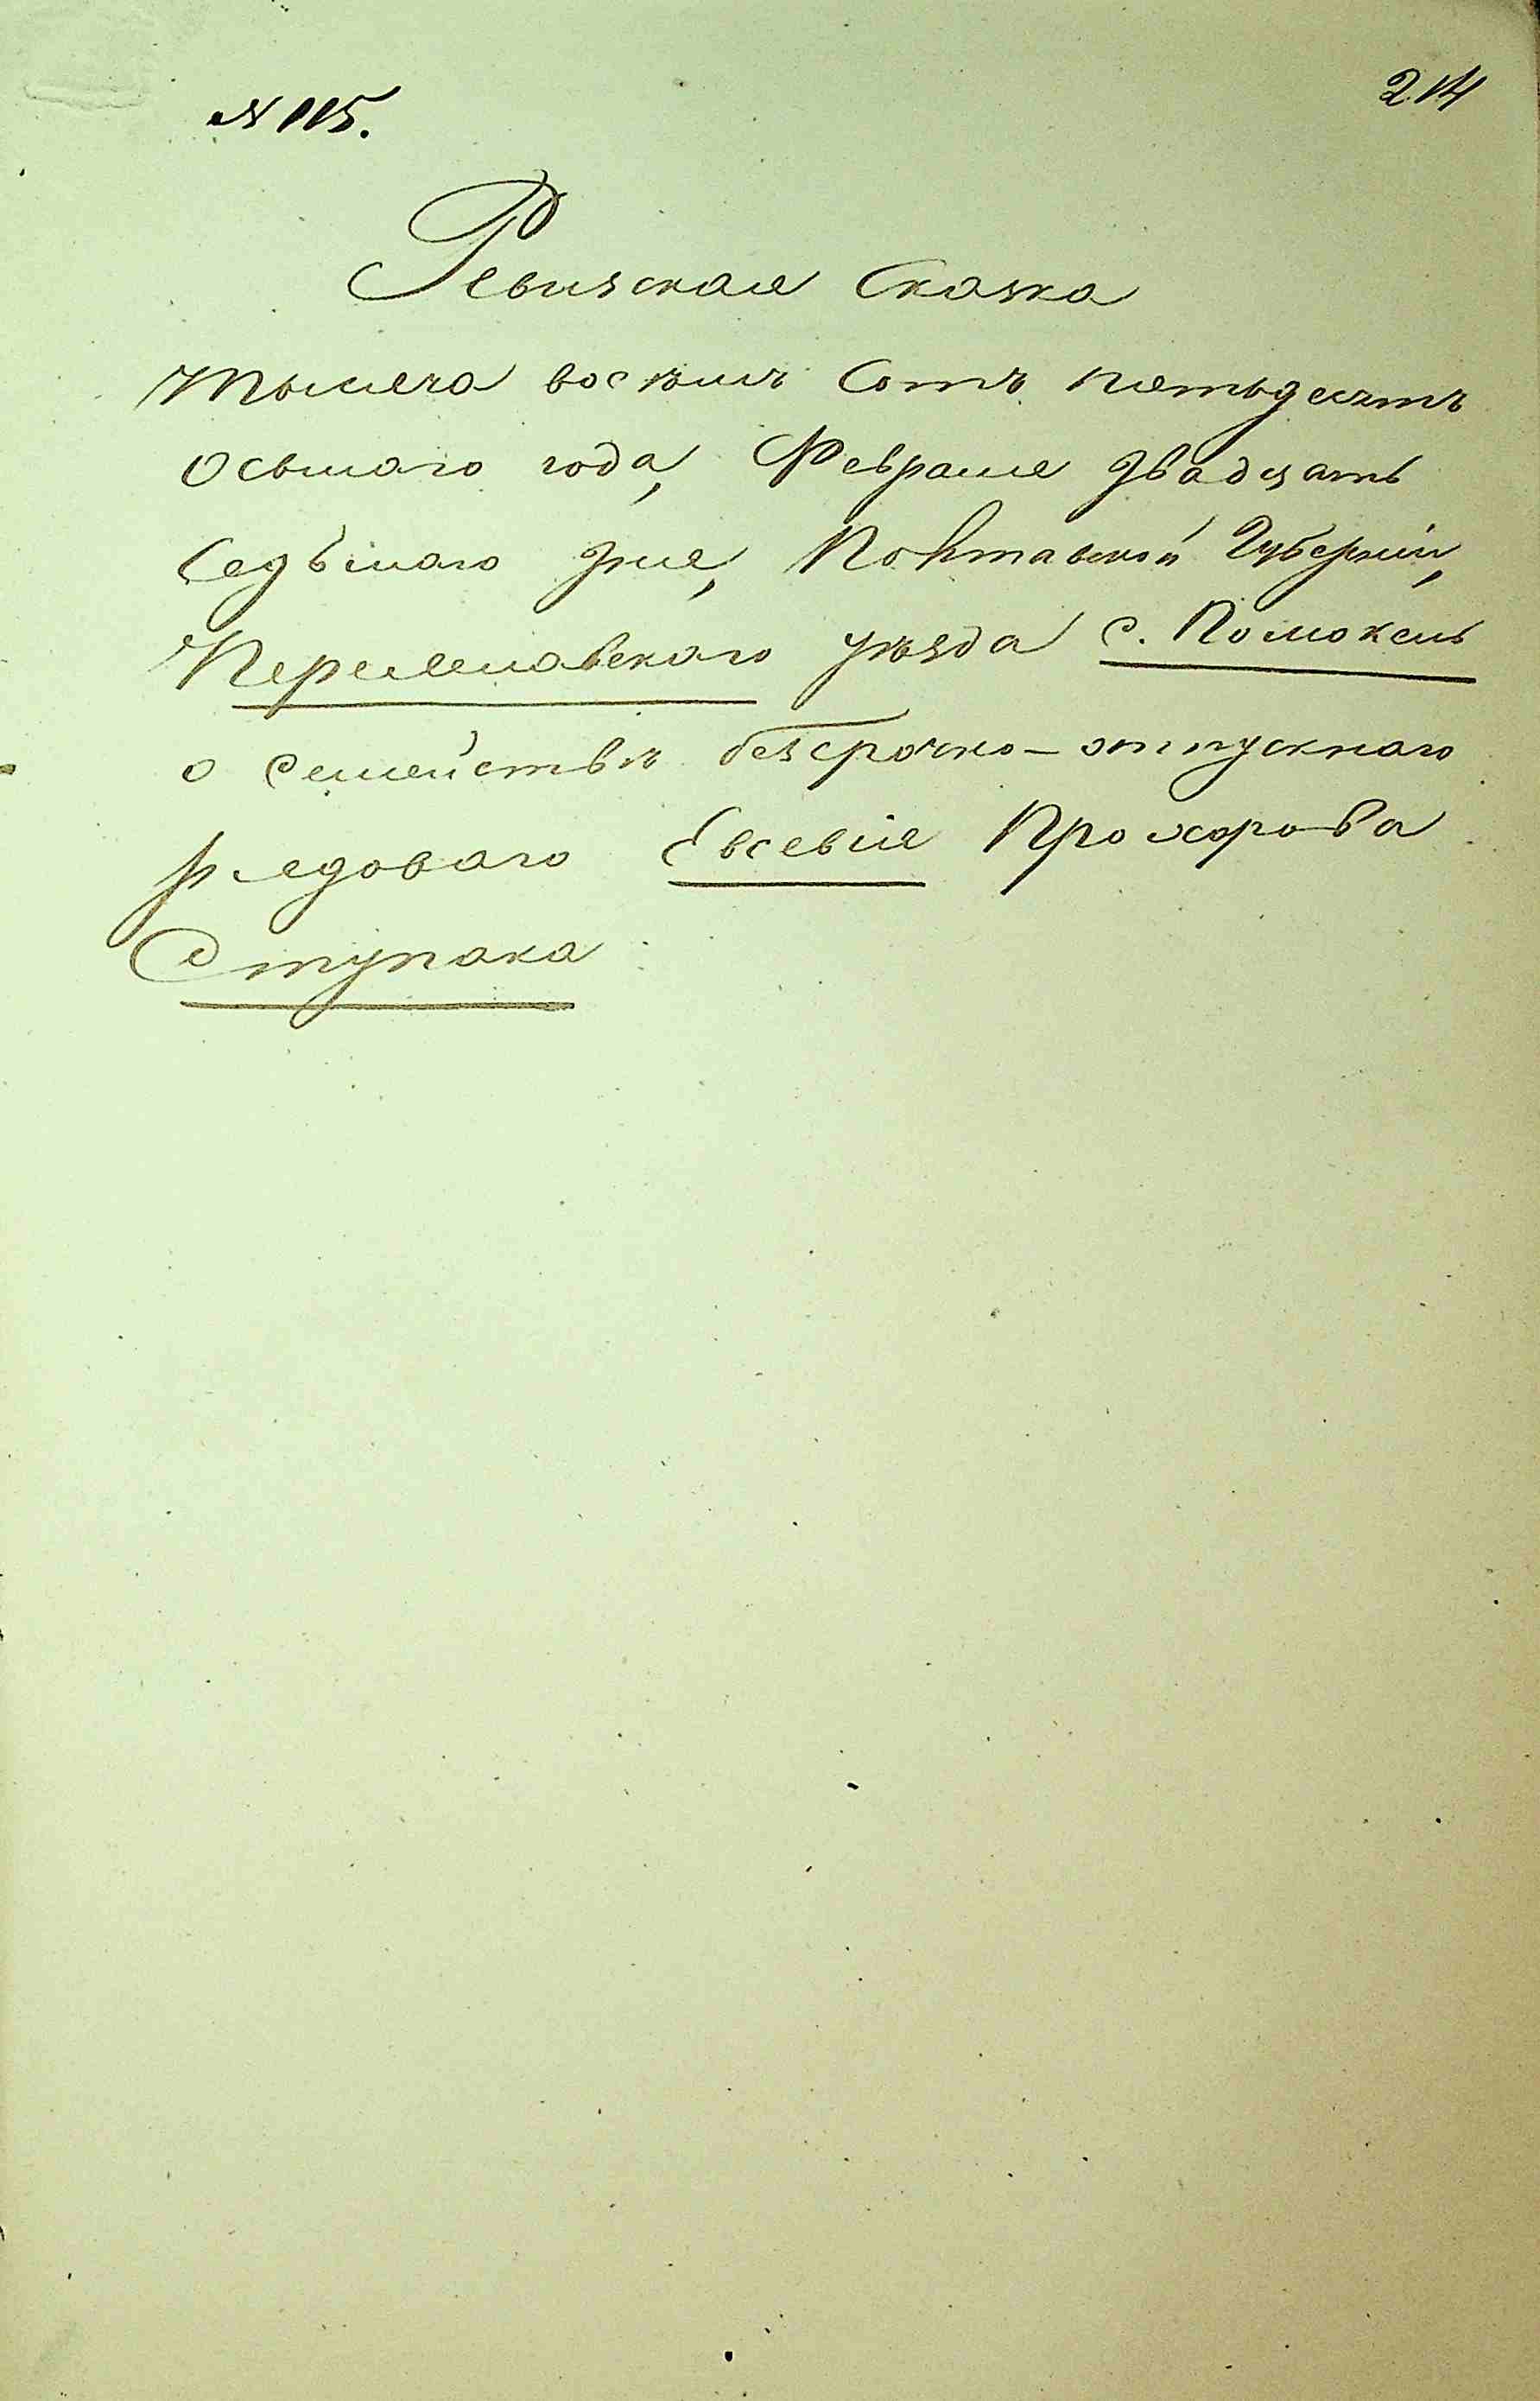 № 115.
214
Ревизская Сказка
Тысяча восѣмъ Сотъ пятьдесятъ
осьмаго года, Февраля двадцать
Седьмаго дня, Полтавской Губерніи,
Переяславскаго уѣзда с. Помоклъ
о семействѣ безсрочно-отпускнаго
рядоваго Евсевія Прохорова
Ступака